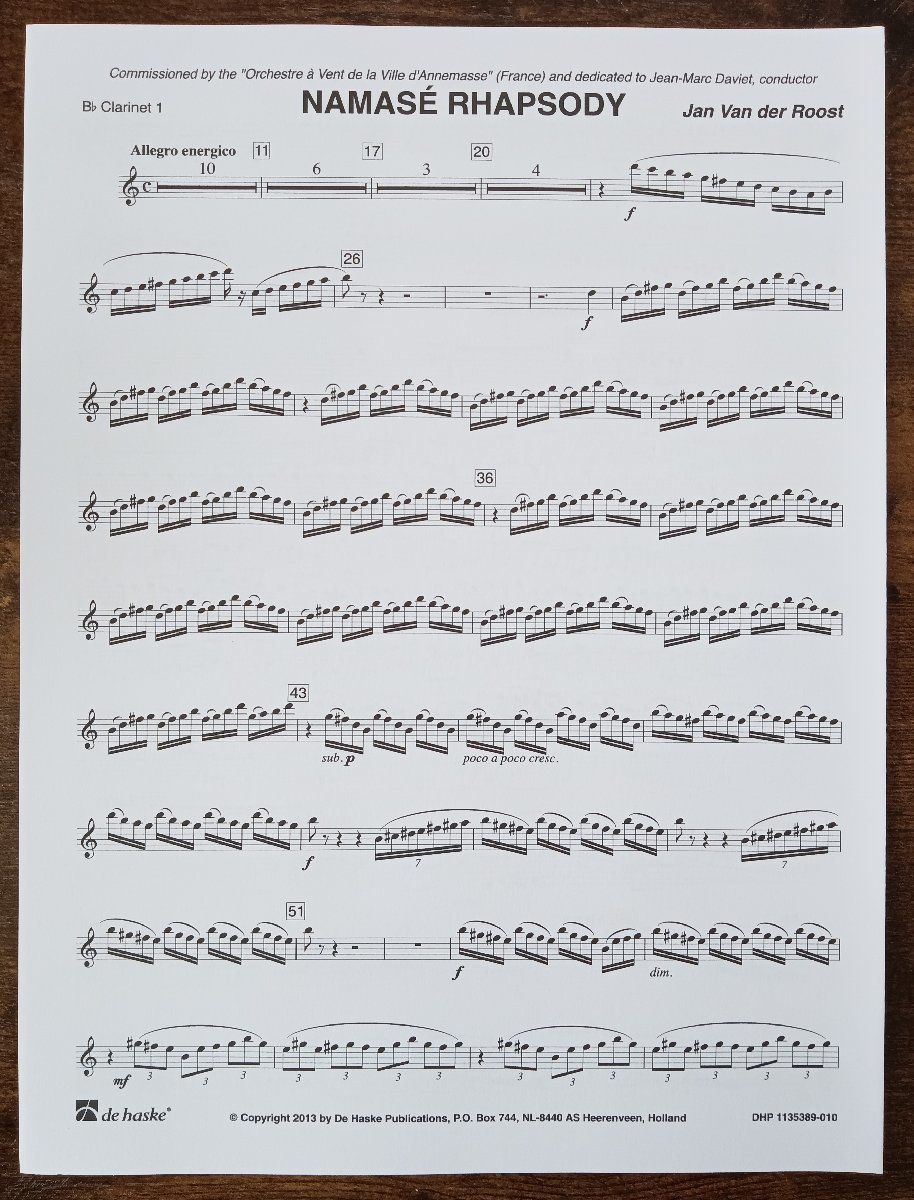 Commissioned by the "Orchestre à Vent de la Ville d'Annemasse" (France) and dedicated to Jean-Marc Daviet, conductor
B♭ Clarinet 1
NAMASÉ RHAPSODY
Jan Van der Roost
Allegro energico 11 17 20
10 6 3 4
f
26
f
36
43
sub. p poco a poco cresc.
f 7 7
51
f dim.
mf 3 3 3 3 3 3 3 3 3 3 3 3 3 3
de haske® © Copyright 2013 by De Haske Publications, P.O. Box 744, NL-8440 AS Heerenveen, Holland DHP 1135389-010